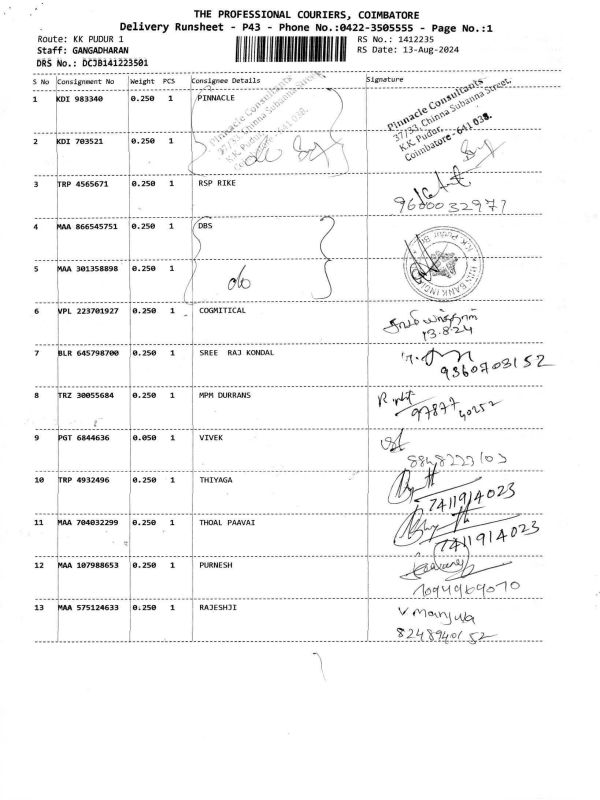 THE PROFESSIONAL COURIERS, COIMBATORE
Delivery Runsheet - P43 - Phone No.:0422-3505555 - Page No.:1
Route: KK PUDUR 1 RS No.: 1412235
Staff: GANGADHARAN RS Date: 13-Aug-2024
DRS No.: DCJB141223501
S No Consignment No Weight PCS Consignee Details Signature
1 KDI 983340 0.250 1 PINNACLE
Pinnacle Consultants
37/33, Chinna Subanna Street,
K.K. Pudur,
Coimbatore - 641 038.
Pinnacle Consultants
37/33, Chinna Subanna Street,
K.K. Pudur,
Coimbatore - 641 038.
2 KDI 703521 0.250 1
3 TRP 4565671 0.250 1 RSP RIKE
9600032977
4 MAA 866545751 0.250 1 DBS
5 MAA 301358898 0.250 1
6 VPL 223701927 0.250 1 COGMITICAL
13.8.24
7 BLR 645798700 0.250 1 SREE RAJ KONDAL
9360703152
8 TRZ 30055684 0.250 1 MPM DURRANS
97877
40252
9 PGT 6844636 0.050 1 VIVEK
8848223103
10 TRP 4932496 0.250 1 THIYAGA
7411914023
11 MAA 704032299 0.250 1 THOAL PAAVAI
7411914023
12 MAA 107988653 0.250 1 PURNESH
7094969070
13 MAA 575124633 0.250 1 RAJESHJI
V Manjula
8248940152